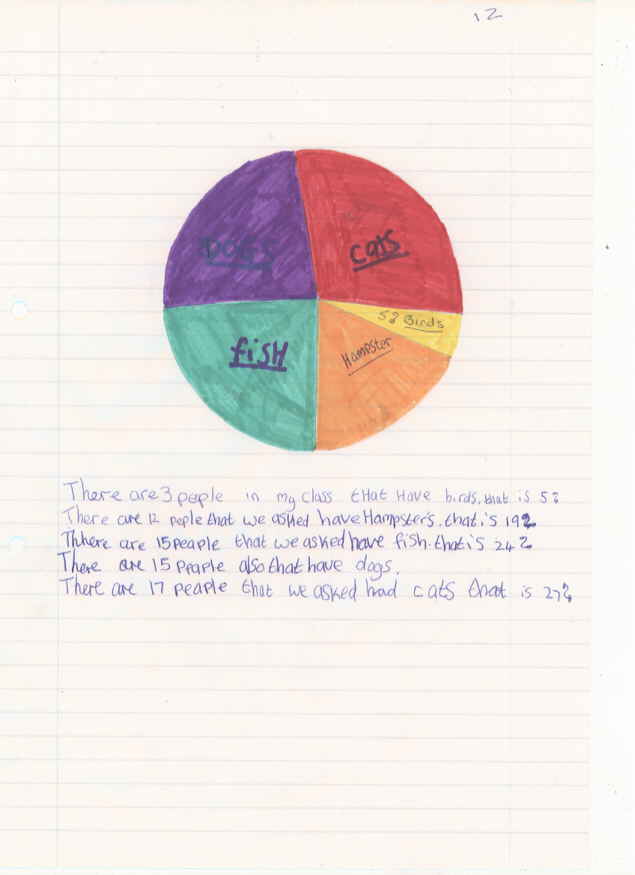 12
DOGS
cats
5% Birds
fiSH
Hampster
There are 3 pepple in my class tHat Have birds. that is 5%
There are 12 pepple that we asked have Hampster's. that is 19%
Thhere are 15 peaple that we asked have fish. that is 24%
There are 15 peaple also that have dogs.
There are 17 peaple that we asked had cats that is 27%